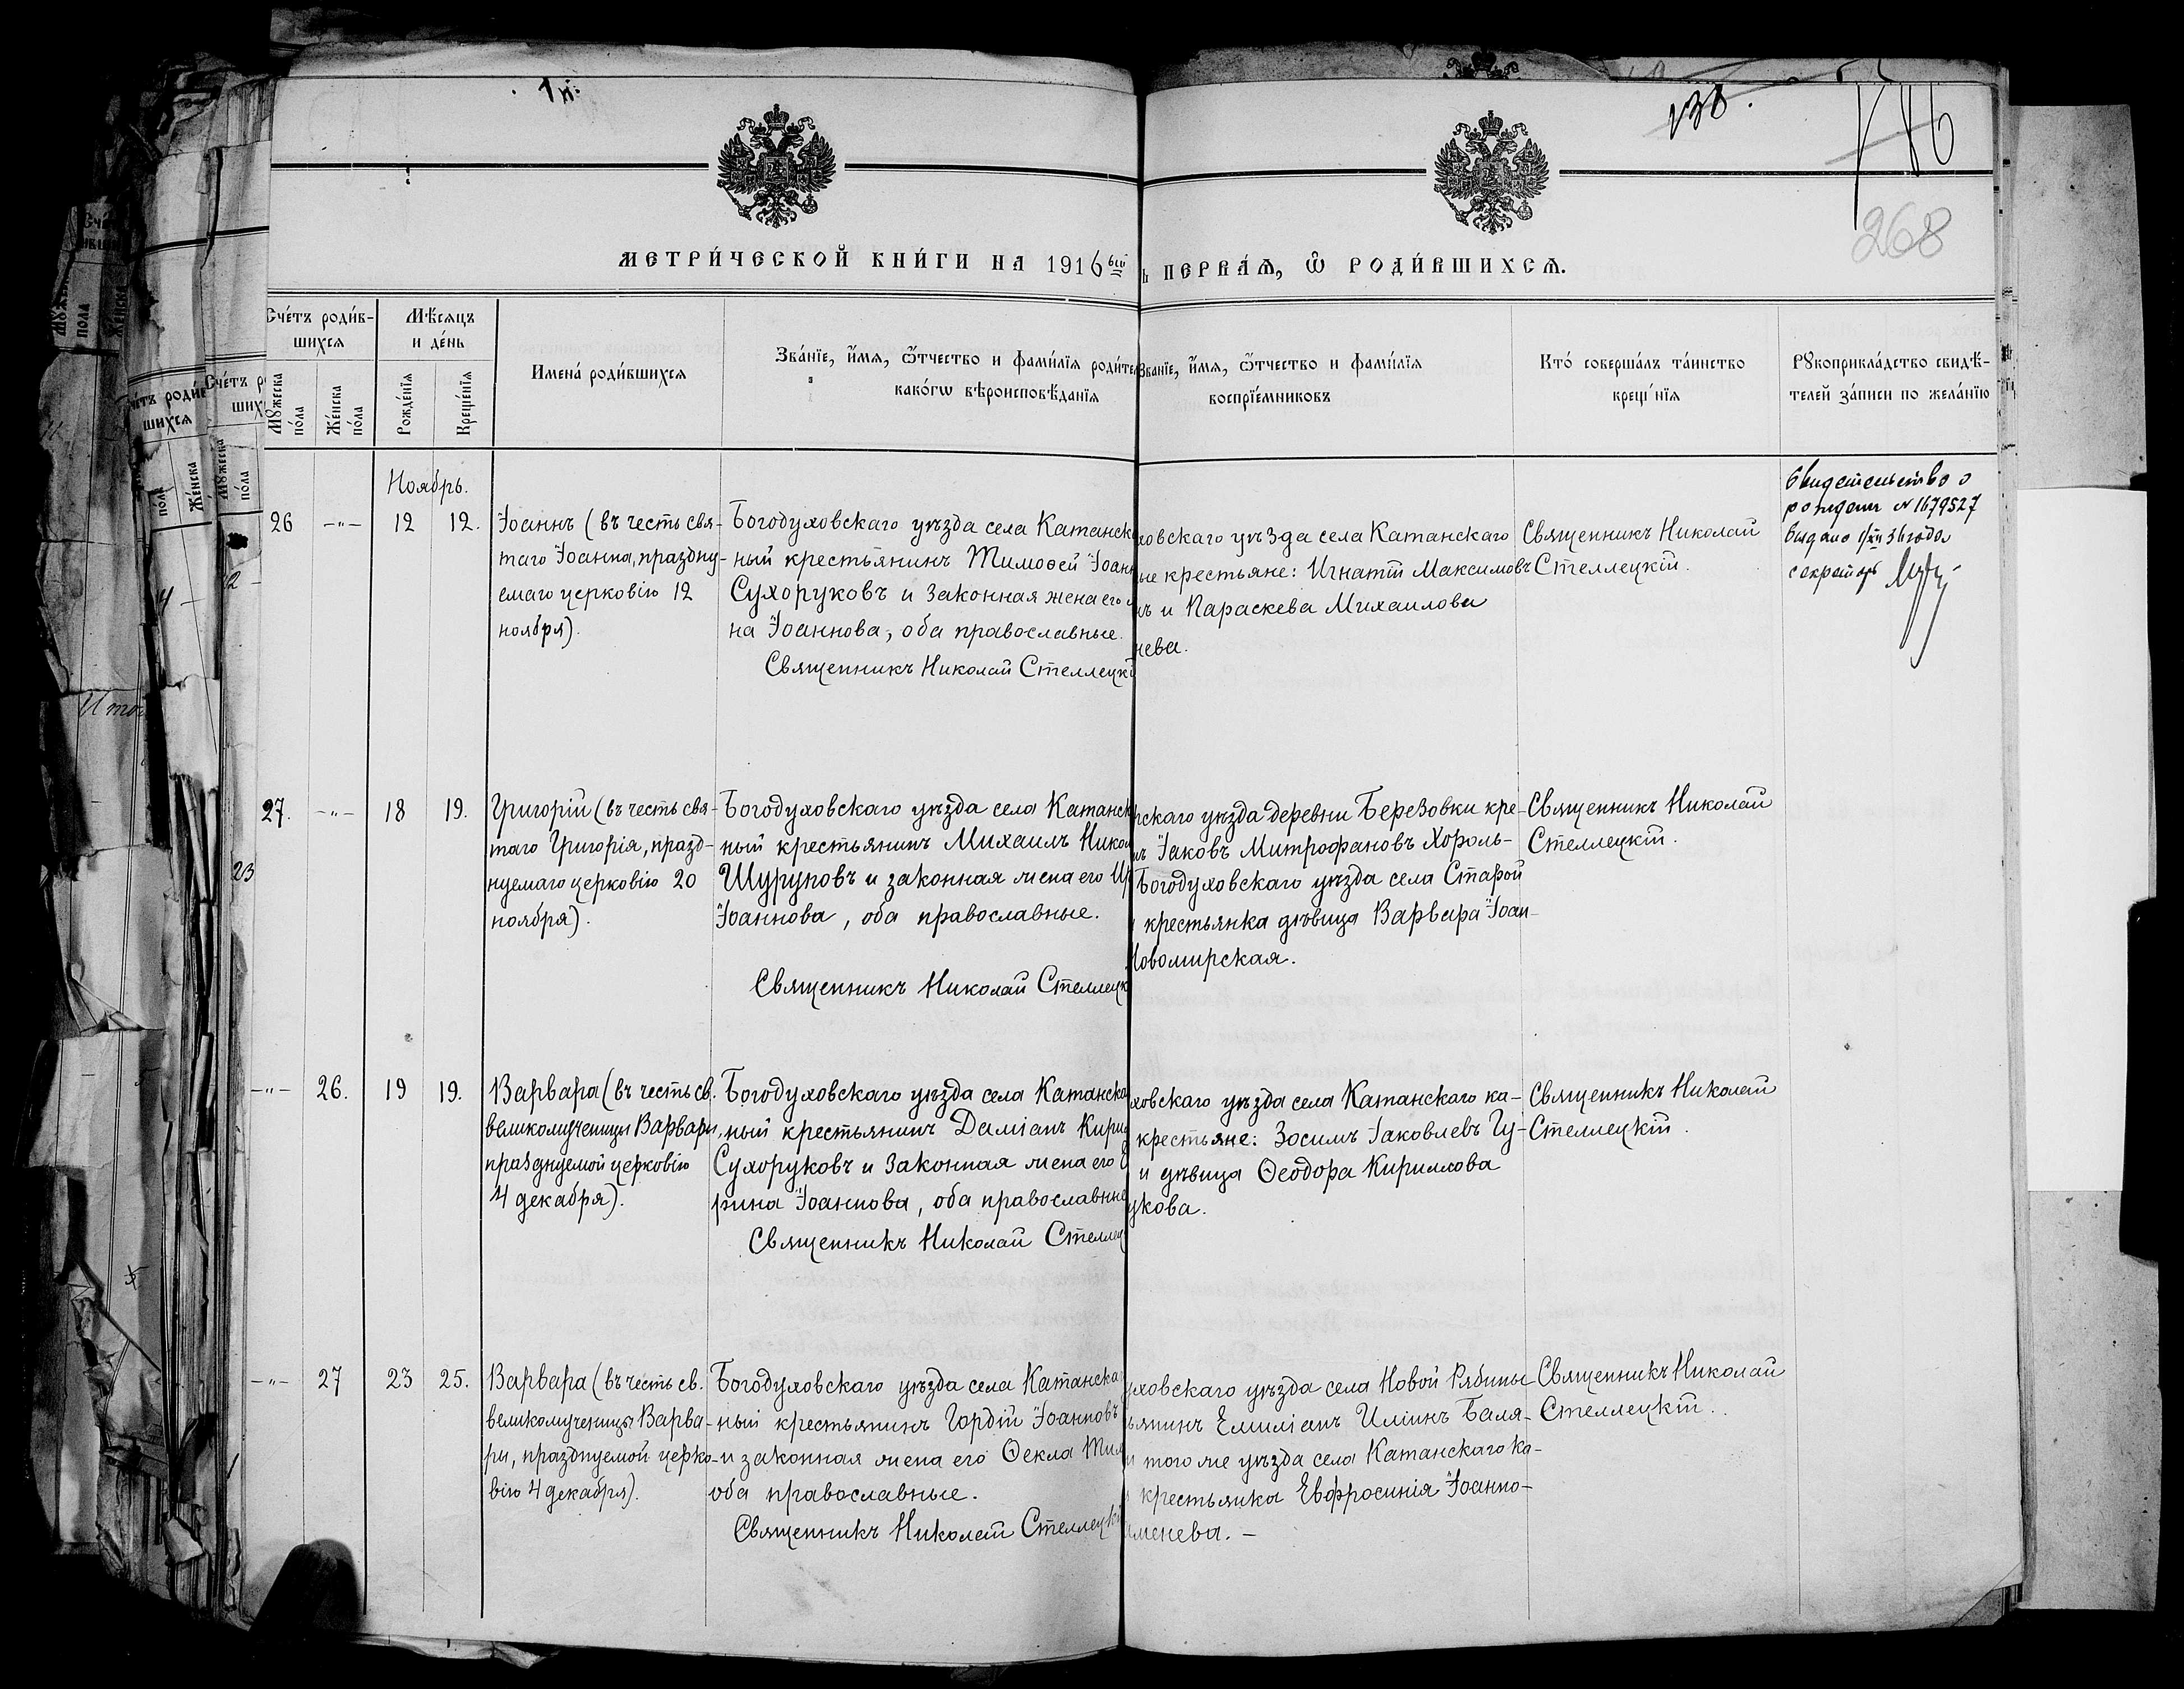 138.
268
МЕТРИ́ЧЕСКОЙ КНИ́ГИ НА 1916
ПЕРВА́Ѧ, Ѿ РОДИ́ВШИХСѦ.
Сче́тъ роди́в-
шихсѧ
Мѣ́сѧцъ
и де́нь
Мꙋ́жеска
по́ла
Же́нска
по́ла
Рожде́нїѧ
Креще́нїѧ
Имена́ роди́вшихсѧ
Зва́нїе, и́мѧ, ѻ҆́тчество и фами́лїѧ
како́гѡ вѣроисповѣ́данїѧ
Зва́нїе, и́мѧ, ѻ҆́тчество и фами́лїѧ
воспрїе́мниковъ
Кто́ соверша́лъ та́инство
креще́нїѧ
Рꙋкоприкла́дство свидѣ́-
телей за́писи по жела́нїю
Ноябрь.
26 —"— 12 12.
Іоаннъ (въ честь свя-
таго Іоанна, праздну-
емаго церковію 12
ноября).
Богодуховскаго уѣзда села Катанск
ный крестьянинъ Тимоѳей Іоанн
Сухоруковъ и законная жена его
на Іоаннова, оба православные.
Священникъ Николай Стеллецкі
ховскаго уѣзда села Катанскаго
ые крестьяне: Игнатій Максимовъ
нъ и Параскева Михаилова
нева.
Священникъ Николай
Стеллецкій.
Свидетельство о
рождении № 1679527
выдано 1/XII 36 года
секретарь
27. —"— 18 19.
Григорій (въ честь свя-
таго Григорія, празд-
нуемаго церковію 20
ноября).
Богодуховскаго уѣзда села Катанск
ный крестьянинъ Михаилъ Никол
Шуруповъ и законная жена его Ир
Іоаннова, оба православные.
Священникъ Николай Стеллецк
скаго уѣзда деревни Березовки кре-
нъ Іаковъ Митрофановъ Хороль-
Богодуховскаго уѣзда села Старой
крестьянка дѣвица Варвара Іоан-
Новомирская.
Священникъ Николай
Стеллецкій.
—"— 26. 19 19.
Варвара (въ честь св.
великомученицы Варвары,
празднуемой церковію
4 декабря).
Богодуховскаго уѣзда села Катанска
ный крестьянинъ Даміанъ Кири
Сухоруковъ и законная жена его
рина Іоаннова, оба православные
Священникъ Николай Стеллец
ховскаго уѣзда села Катанскаго ка-
крестьяне: Зосимъ Іаковлевъ Гу-
и дѣвица Ѳеодора Кириллова
укова.
Священникъ Николай
Стеллецкій.
—"— 27 23 25.
Варвара (въ честь св.
великомученицы Варва-
ры, празднуемой церко-
вію 4 декабря).
Богодуховскаго уѣзда села Катанска
ный крестьянинъ Гордій Іоанновъ
и законная жена его Ѳекла Тим
оба православные.
Священникъ Николай Стеллецкі
уховскаго уѣзда села Новой Рябины
ьянинъ Емиліанъ Иліинъ Баля-
и того же уѣзда села Катанскаго ка-
крестьянка Евфросинія Іоанно-
менева. —
Священникъ Николай
Стеллецкій.